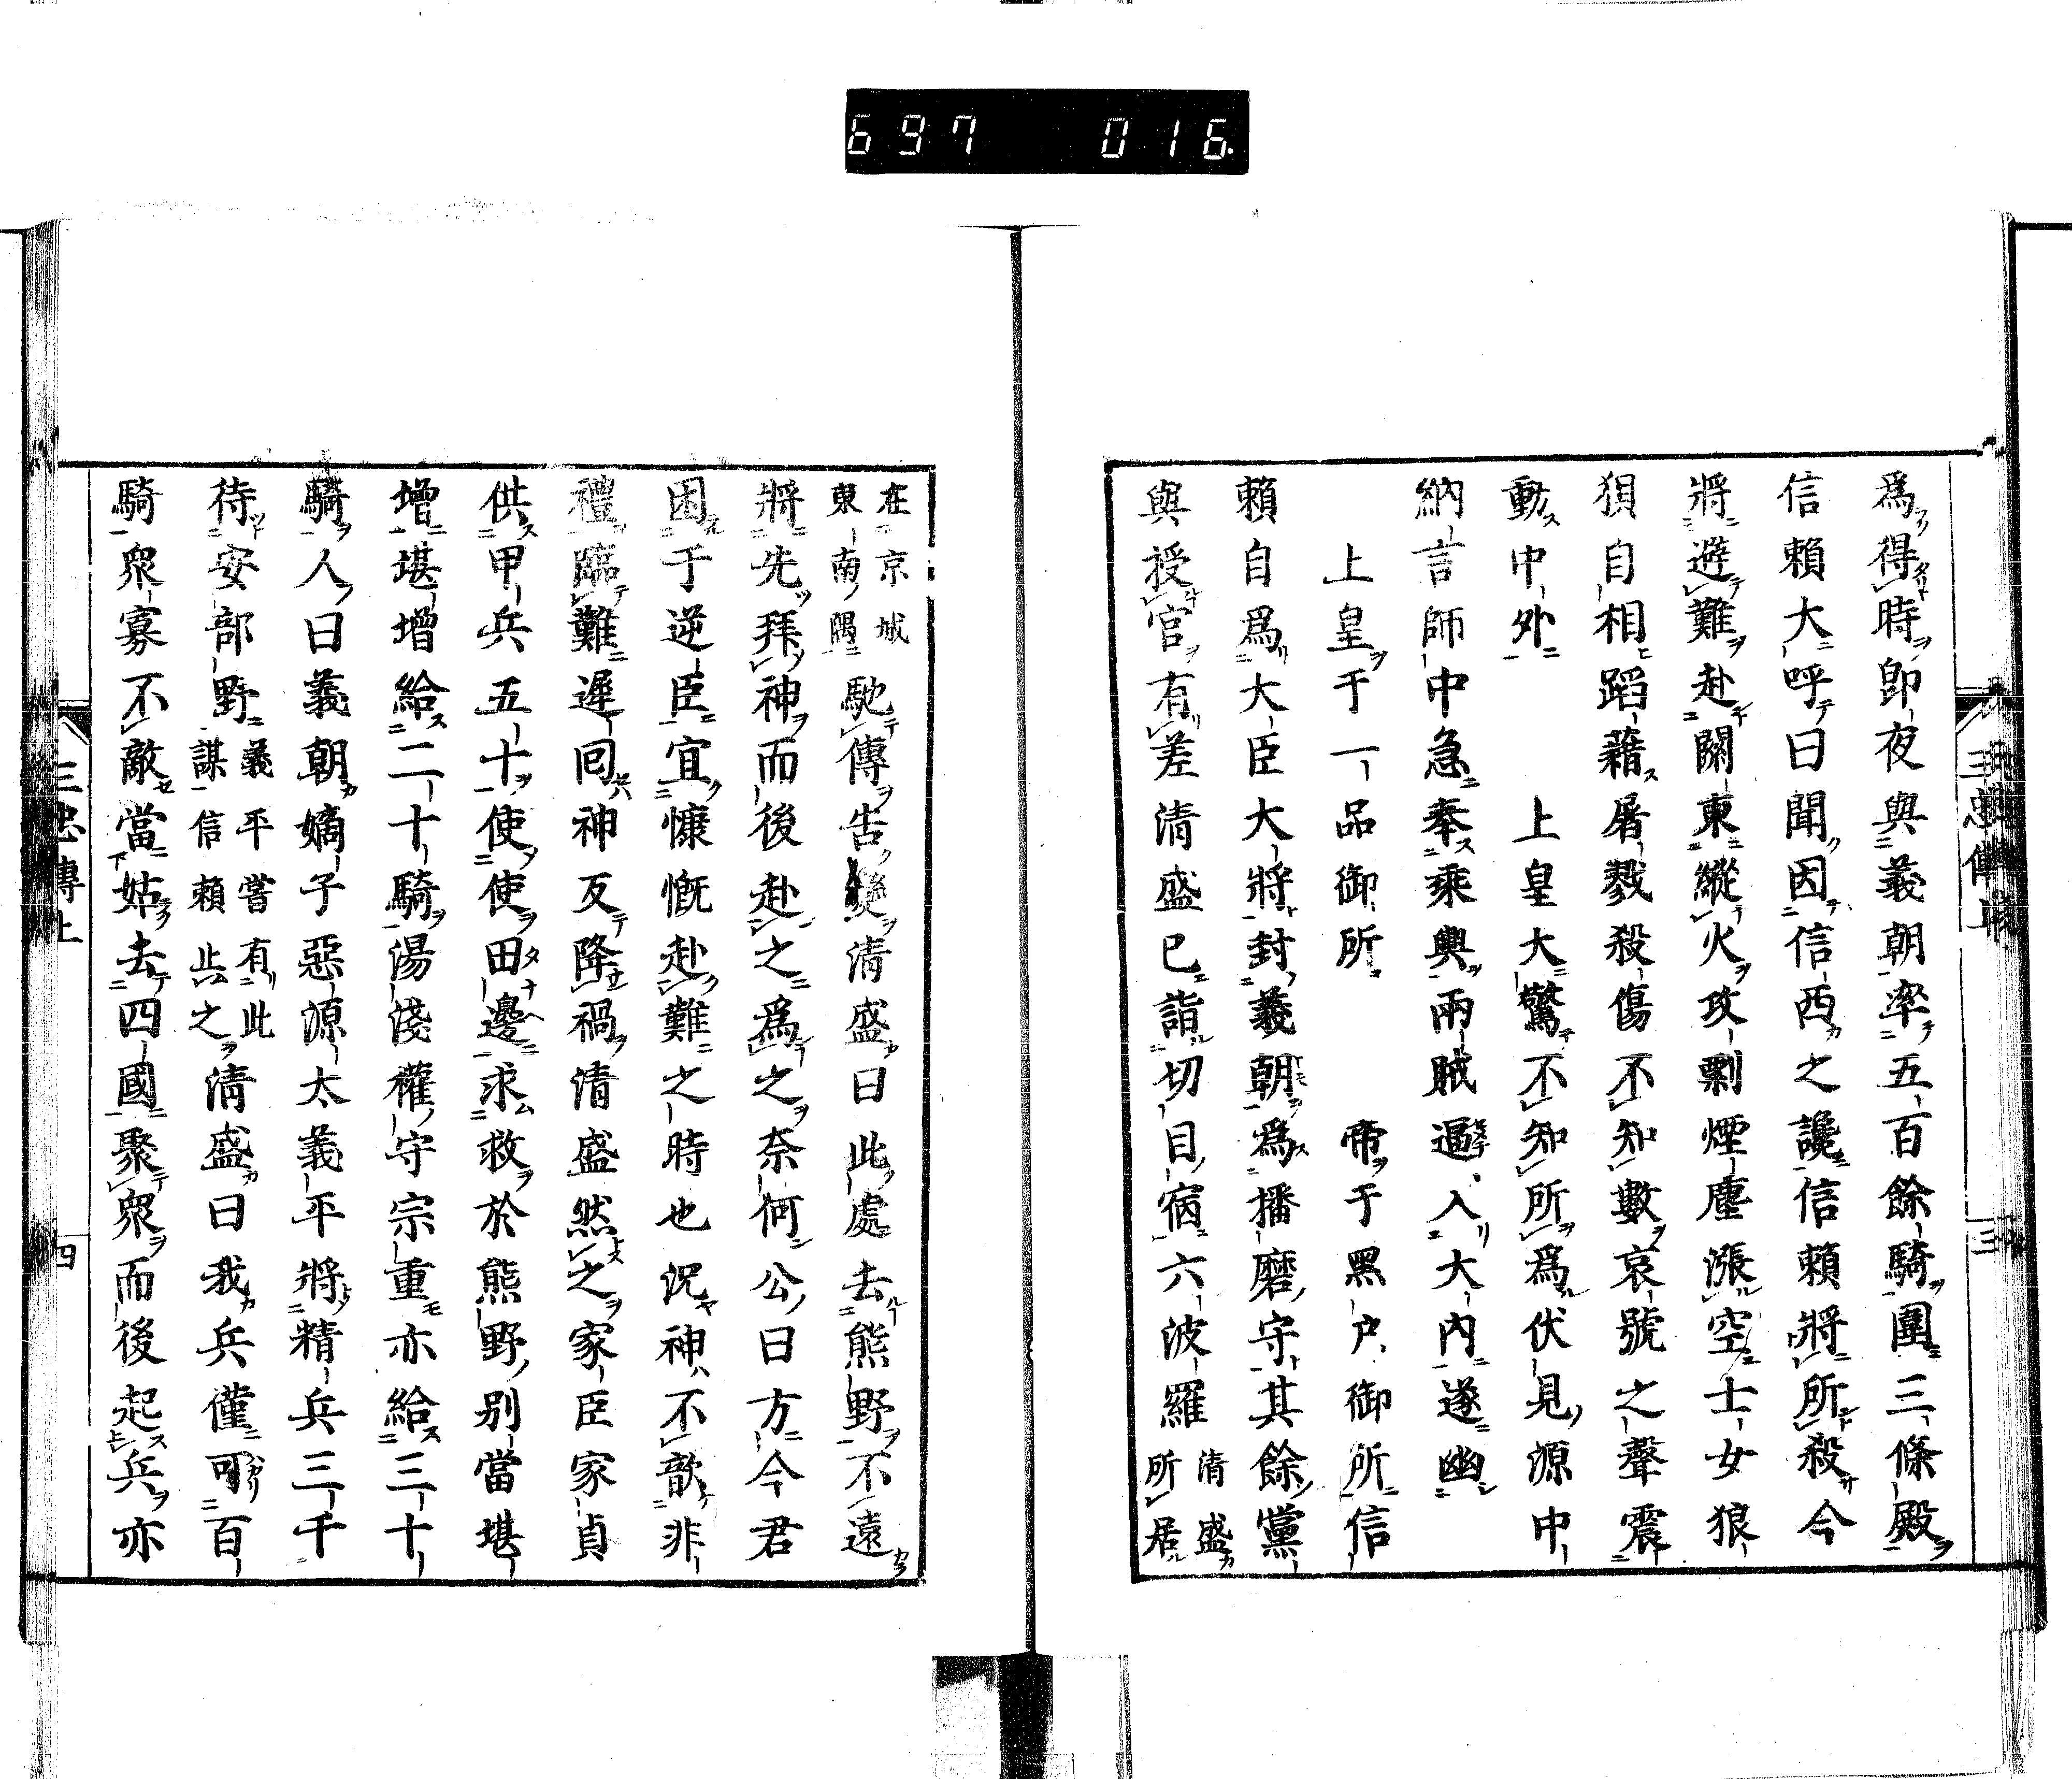 697 016.
三忠傳上 三
爲得時即夜與義朝率五百餘騎圍三條殿
信賴大呼曰聞因信西之讒信賴將所殺今
將遊難赴關東縱火攻剽煙塵漲空士女狼
狽自相蹈藉屠戮殺傷不知數哀號之聲震
動中外 上皇大驚不知所爲伏見源中
納言師中急奉乘輿兩賊逼入大內遂幽
上皇于一品御所 帝于黑戶御所信
賴自爲大臣大將封義朝爲播磨守其餘黨
與授官有差清盛已詣切目宿六波羅清盛所居
在京城東南隅馳傳告變清盛曰此處去熊野不遠
將先拜神而後赴之爲之奈何公曰方今君
困于逆臣宜慷慨赴難之時也況神不歆非
禮臨難遲回神反降禍清盛然之家臣家貞
供甲兵五十使使田邊求救於熊野別當堪
增堪增給二十騎湯淺權守宗重亦給三十
騎人曰義朝嫡子惡源太義平將精兵三千
待安部野義平嘗有此謀信賴止之清盛曰我兵僅可百
騎衆寡不敵當姑去四國聚衆而後起兵亦
三忠傳上 四